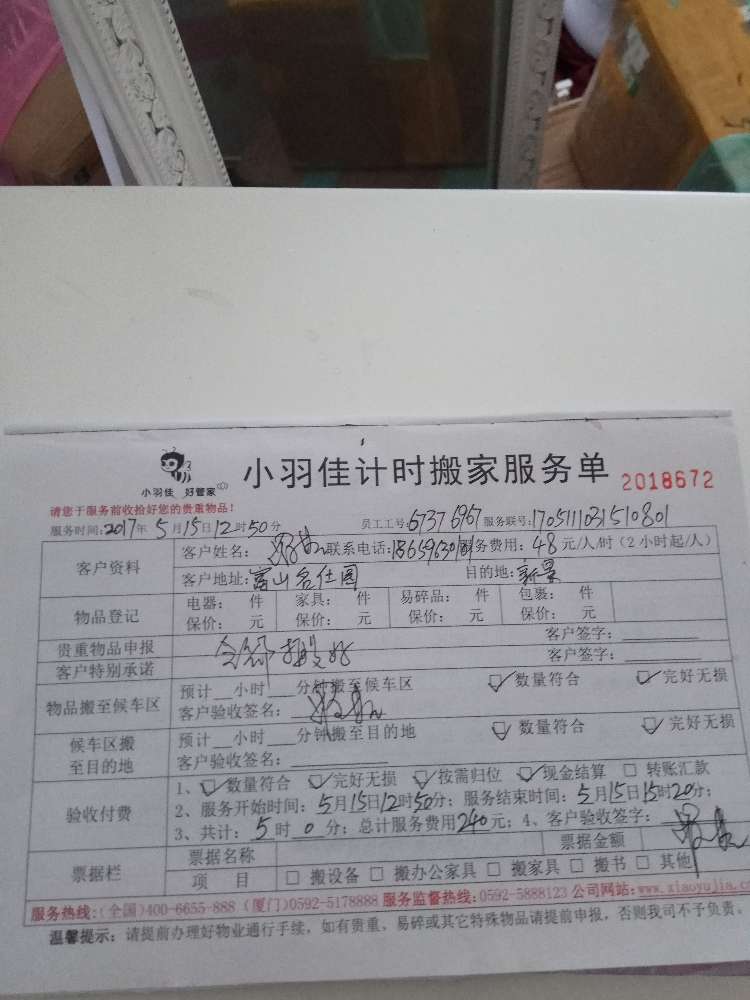 小羽佳 好管家
小羽佳计时搬家服务单 2018672
请您于服务前收拾好您的贵重物品!
服务时间:2017年5月15日12时50分 员工工号:6737 6967 服务联号:170511031510801
客户资料 客户姓名: 联系电话: 服务费用:48元/人/时(2小时起/人)
客户地址:富山名仕园 目的地:新景
物品登记 电器: 件 家具: 件 易碎品: 件 包裹: 件
保价: 元 保价: 元 保价: 元 保价: 元
贵重物品申报 客户签字:
客户特别承诺 全部搬好 客户签字:
物品搬至候车区 预计__小时__分钟搬至候车区 ☑数量符合 ☑完好无损
客户验收签名:
候车区搬至目的地 预计__小时__分钟搬至目的地 ☑数量符合 ☑完好无损
客户验收签名:
验收付费 1、☑数量符合 ☑完好无损 ☑按需归位 ☑现金结算 □转账汇款
2、服务开始时间:5月15日12时50分;服务结束时间:5月15日15时20分;
3、共计:5时0分;总计服务费用240元;4、客户验收签字:
票据栏 票据名称 票据金额
项 目 □搬设备 □搬办公家具 □搬家具 □搬书 □其他
服务热线:(全国)400-6655-888 (厦门)0592-5178888 服务监督热线:0592-5888123 公司网站:www.xiaoyujia.c
温馨提示:请提前办理好物业通行手续,如有贵重、易碎或其它特殊物品请提前申报,否则我司不予负责。